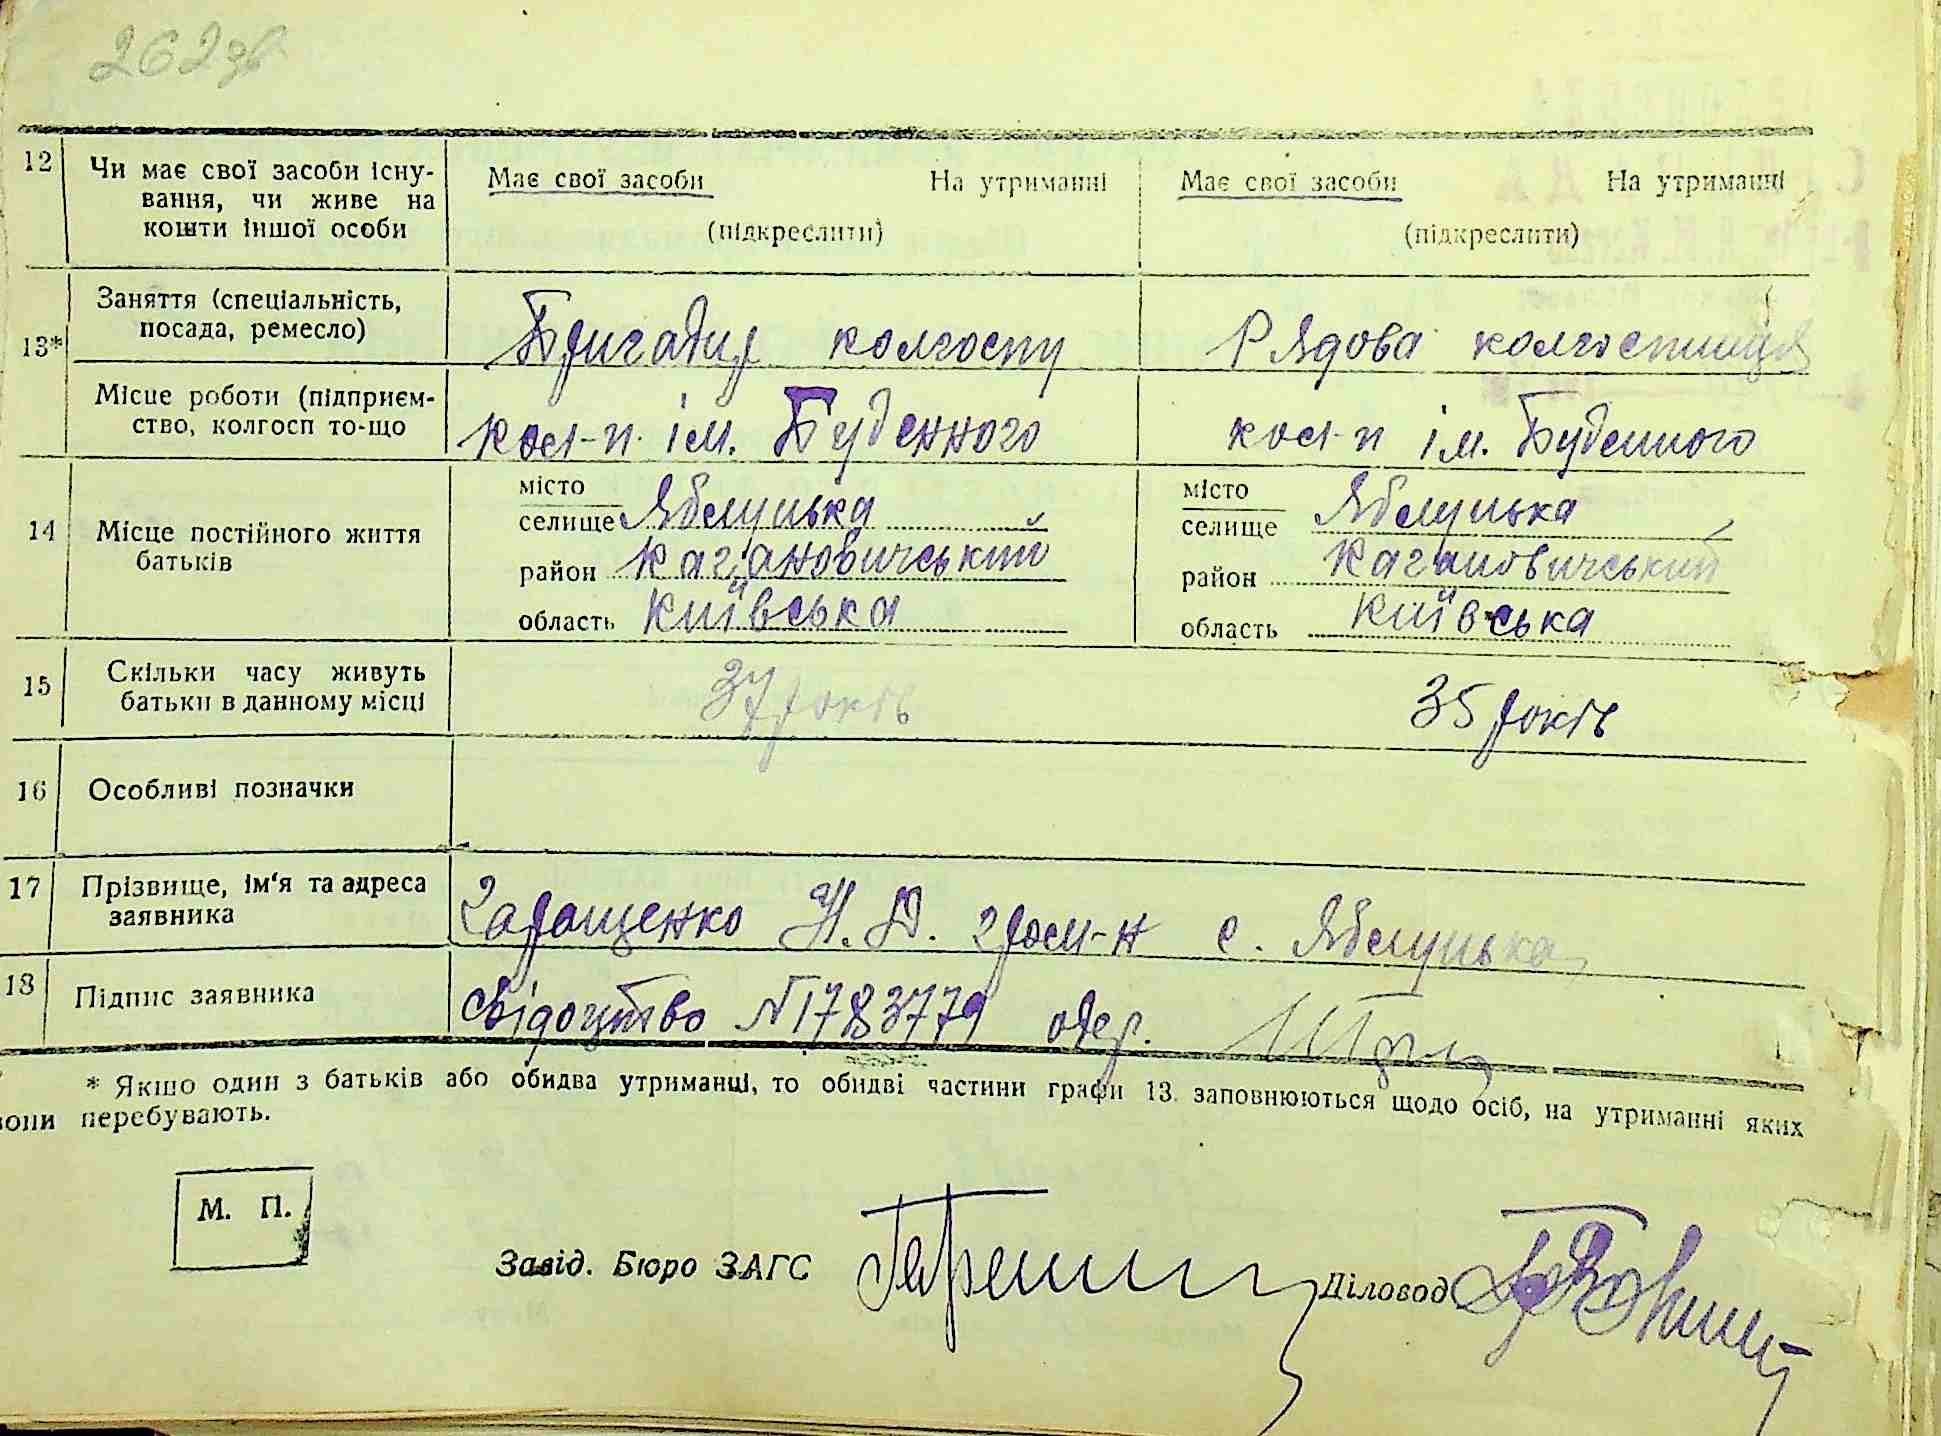 262зв
12 Чи має свої засоби існу-
вання, чи живе на
кошти іншої особи
Має свої засоби На утриманні
(підкреслити)
Має свої засоби На утриманці
(підкреслити)
13* Заняття (спеціальність,
посада, ремесло)
Бригадир колгоспу
Рядова колгоспниця
Місце роботи (підприєм-
ство, колгосп то-що
кол-п ім. Буденного
кол-п ім. Буденного
14 Місце постійного життя
батьків
місто
селище Яблунька
район Кагановичський
область Київська
місто
селище Яблунька
район Кагановичський
область Київська
15 Скільки часу живуть
батьки в данному місці
37 років
35 років
16 Особливі позначки
17 Прізвище, ім'я та адреса
заявника
Гаращенко Н. Ф. гром-н с. Яблунька
18 Підпис заявника
свідоцтво №1783779 одер.
* Якшо один з батьків або обидва утриманці, то обидві частини графи 13 заповнюються щодо осіб, на утриманні яких
вони перебувають.
М. П.
Завід. Бюро ЗАГС
Діловод